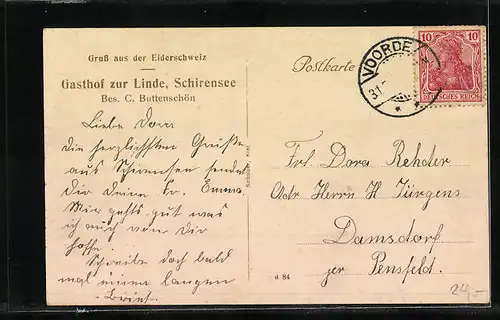 Gruß aus der Eiderschweiz
Gasthof zur Linde, Schirensee
Bes. C. Buttenschön
Liebe Dora
Die herzlichsten Grüße
aus Schirensee sendet
Dir Deine Fr. Emma.
Mir gehts gut was
ich auch von Dir
hoffe.
Schreibe doch bald
mal einen langen
Brief.
Postkarte
VOORDE
31.
10
10
DEUTSCHES REICH
Frl. Dora Rehder
Adr Herrn H Jürgens
Damsdorf
per Pensfeld.
d 84
24,-